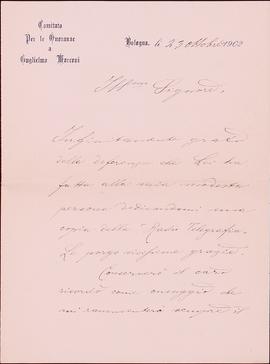 Comitato
Per le Onoranze
a
Guglielmo Marconi
Bologna, le 23 Ottobre 1902
Ill.mo Signore.
Infinitamente grato
della deferenza che Lei ha
fatta alla mia modesta
persona dedicandomi una
copia della Radio Telegrafia.
Le porgo vivissime grazie.
Conserverò il caro
ricordo come omaggio che
mi rammenterà sempre il